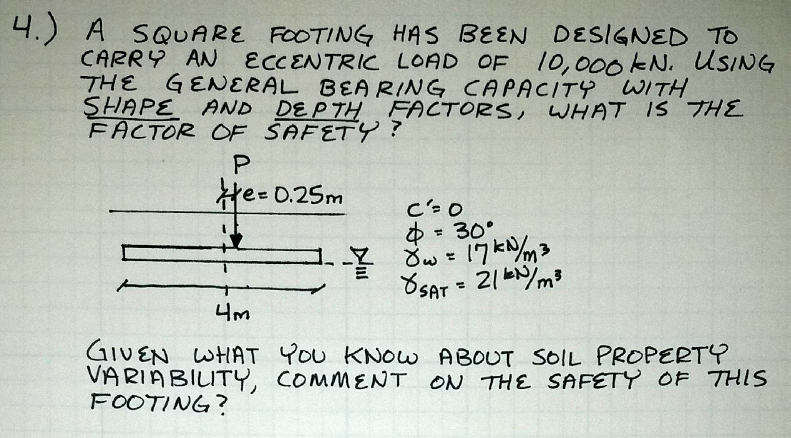 4.) A SQUARE FOOTING HAS BEEN DESIGNED TO
CARRY AN ECCENTRIC LOAD OF 10,000 kN. USING
THE GENERAL BEARING CAPACITY WITH
SHAPE AND DEPTH FACTORS, WHAT IS THE
FACTOR OF SAFETY?
P
e = 0.25m
c' = 0
ϕ = 30°
γw = 17 kN/m³
γSAT = 21 kN/m³
4m
GIVEN WHAT YOU KNOW ABOUT SOIL PROPERTY
VARIABILITY, COMMENT ON THE SAFETY OF THIS
FOOTING?